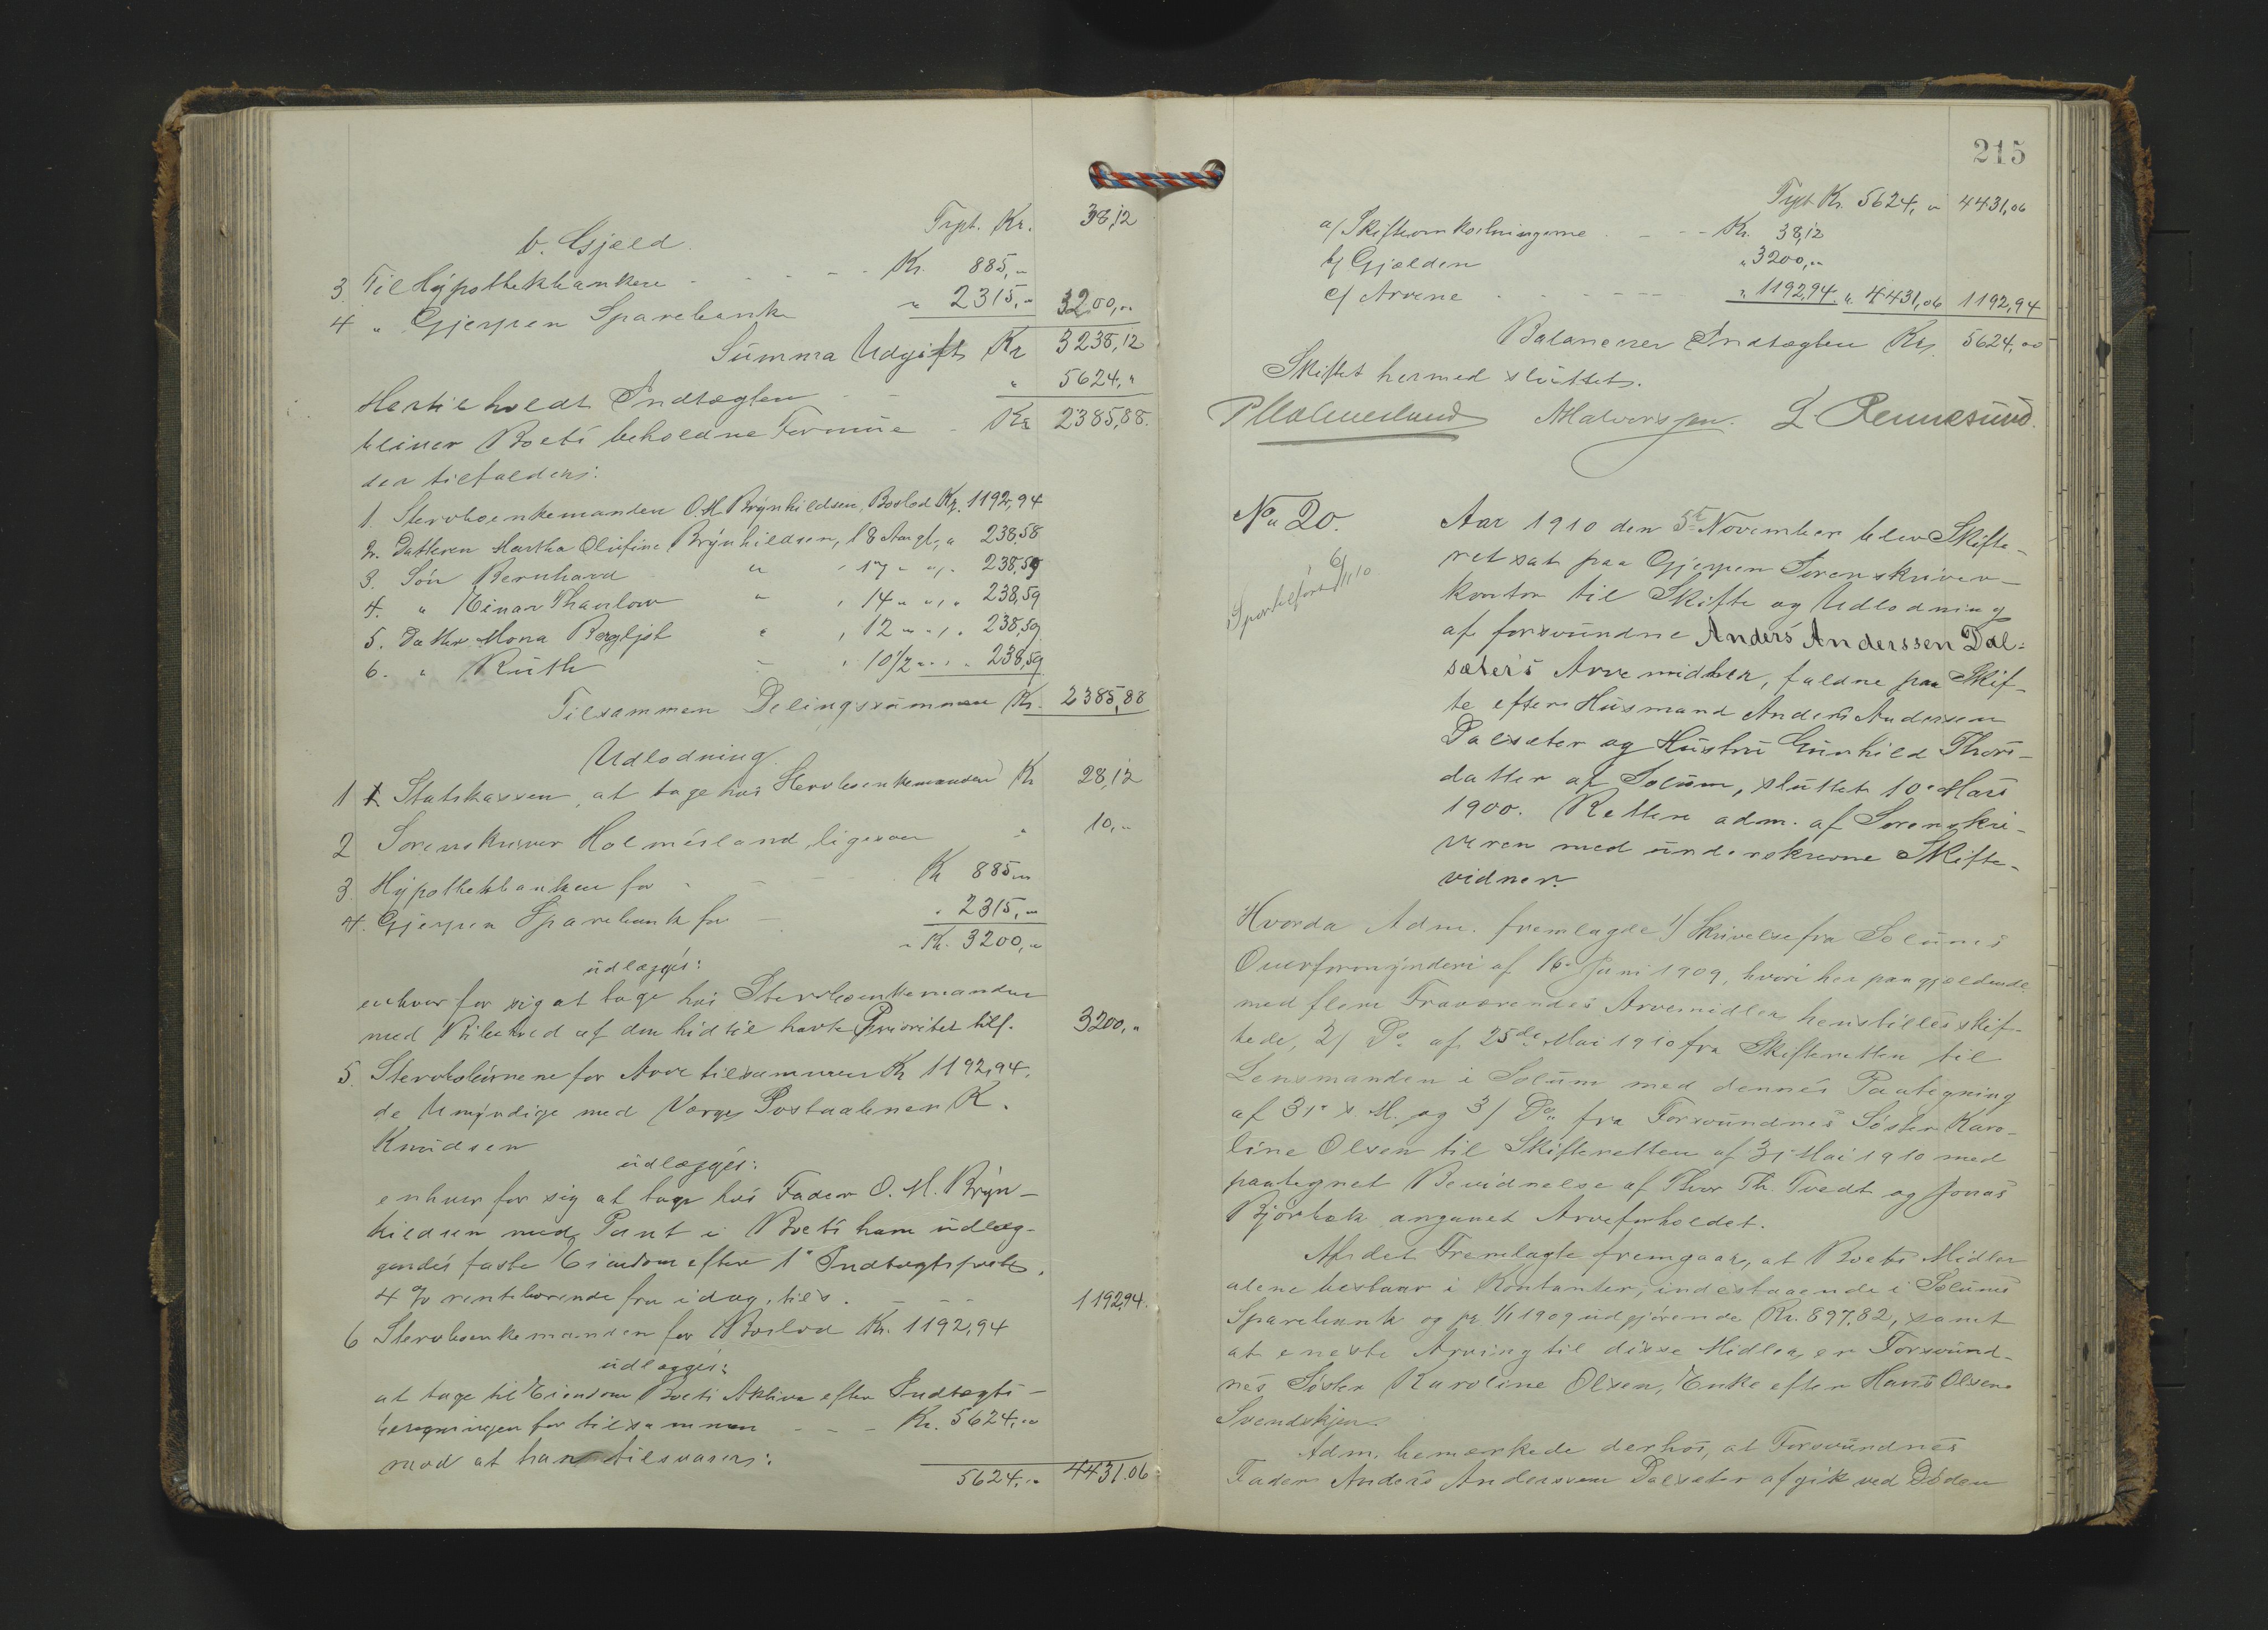 Trpt. Kr. 38,12
b. Gjæld.
3. Til Hypothekbanken - - - - Kr. 885,"
4 " Gjerpen Sparebank " 2315," 3200,"
Summa Udgift Kr 3238,12
Hertil holdt Indtægten - - " 5624,"
bliver Boets beholdne Formue - Kr 2385,88.
der tilfalder:
1. Stervboenkemanden O. M. Brynhildsen, Boslod Kr. 1192,94
2. Datteren Martha Olufine Brynhildsen, 18 Aar gl., " 238,58
3. Søn Bernhard " , 17 " " , " 238,59
4. " Einar Thaulow " , 14 " " , " 238,59
5. Datter Mona Bergljot " , 12 " " , " 238,59
6. " Ruth " , 10 1/2 " " , " 238,59
Tilsammen Delingssummen Kr. 2385,88
Udlodning.
1 Statskassen, at tage hos Stervboenkemanden Kr 28,12
2 Sorenskriver Holmesland, ligesaa " 10,"
3. Hypothekbanken for - - - Kr 885,"
4. Gjerpen Sparebank for - " 2315,"
" Kr. 3200,"
udlægges:
enhver for sig at tage hos Stervboenkemanden
med Vilkaar af den hidtil havte Prioritet tils. 3200,"
5. Stervbobørnene for Arv tilsammen Kr 1192,94.
de Umyndige med Værge Postaabner K.
Knudsen
udlægges:
enhver for sig at tage hos Fader O. M. Bryn-
hildsen med Pant i Boets ham udlæg-
gendes faste Eiendom efter 1ste Indtægtspost,
4 % rentebærende fra idag, tils. - - - 1192,94.
6 Stervboenkemanden for Boslod Kr. 1192,94
udlægges:
at tage til Eiendom Boets Aktiva efter Indtægts-
beregningen for tilsammen - - - Kr. 5624,"
mod at han tilsvarer:
5624," 4431,06
215
Trpt Kr. 5624," 4431,06
a/ Skifteomkostningerne - - - Kr. 38,12
b/ Gjælden " 3200,"
c/ Arvene - - - - - " 1192,94 " 4431,06 1192,94
Balancerer Indtægten Kr. 5624,00
Skiftet hermed sluttet.
P Holmesland Halvorsen. L. Rennesund.
No 20.
Sportelført 6/11 10
Aar 1910 den 5te November blev Skifte-
ret sat paa Gjerpen Sorenskriver-
kontor til Skifte og Udlodning
af forsvundne Anders Anderssen Dal-
sæter's Arvemidler, faldne paa Skif-
te efter Husmand Anders Andersen
Dalsæter og Hustru Gunhild Thors-
datter af Solum, sluttet 10de Mars
1900. Retten adm. af Sorenskri-
veren med underskrevne Skifte-
vidner.
Hvorda Adm. fremlagde 1/ Skrivelse fra Solums
Overformynderi af 16de Juni 1909, hvori her paagjældende
med flere Fraværendes Arvemidler henstilles skif-
tede, 2/ Do af 25de Mai 1910 fra Skifteretten til
Lensmanden i Solum med dennes Paategning
af 31te s. M. og 3/ Do fra Forsvundnes Søster Karo-
line Olsen til Skifteretten af 31 Mai 1910 med
paategnet Bevidnelse af Thor Th. Tvedt og Jonas
Bjorbæk angaaet Arveforholdet.
Af det Fremlagte fremgaar, at Boets Midler
alene bestaar i Kontanter, indestaaende i Solums
Sparebank og pr. 1/1 1909 udgjørende Kr. 897,82, samt
at eneste Arving til disse Midler er Forsvund-
nes Søster Karoline Olsen, Enke efter Hans Olsen
Svendskjær.
Adm. bemærkede derhos, at Forsvundnes
Fader Anders Anderssen Dalsæter afgik ved Døden